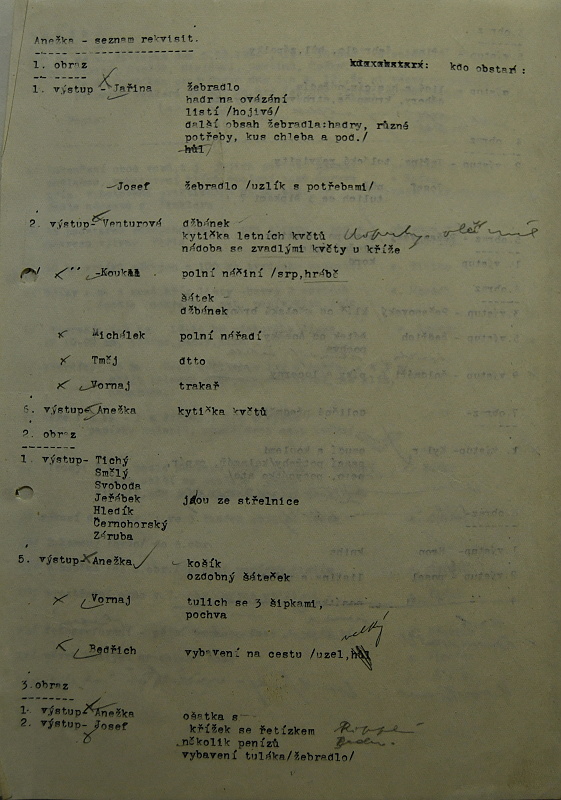 Anežka - seznam rekvisit.
1. obraz kdo obstará:
1. výstup - Jařina žebradlo
hadr na ovázání
listí /hojivé/
další obsah žebradla:hadry, různé
potřeby, kus chleba a pod./
hůl
Josef žebradlo /uzlík s potřebami/
2. výstup- Venturová džbánek
kytička letních květů
nádoba se zvadlými květy u kříže
-Koukal polní náčiní /srp,hrábě
šátek
džbánek
Michálek polní nářadí
Tměj dtto
Vornaj trakař
6. výstup- Anežka kytička květů
2. obraz
1. výstup- Tichý
Smělý
Svoboda
Jeřábek jdou ze střelnice
Hledík
Černohorský
Záruba
5. výstup- Anežka košík
ozdobný šáteček
Vornaj tulich se 3 šipkami,
pochva
velký
Bedřich vybavení na cestu /uzel,hůl
3.obraz
1. výstup- Anežka ošatka s
2. výstup- Josef křížek se řetízkem
několik penízů
vybavení tuláka/žebradlo/